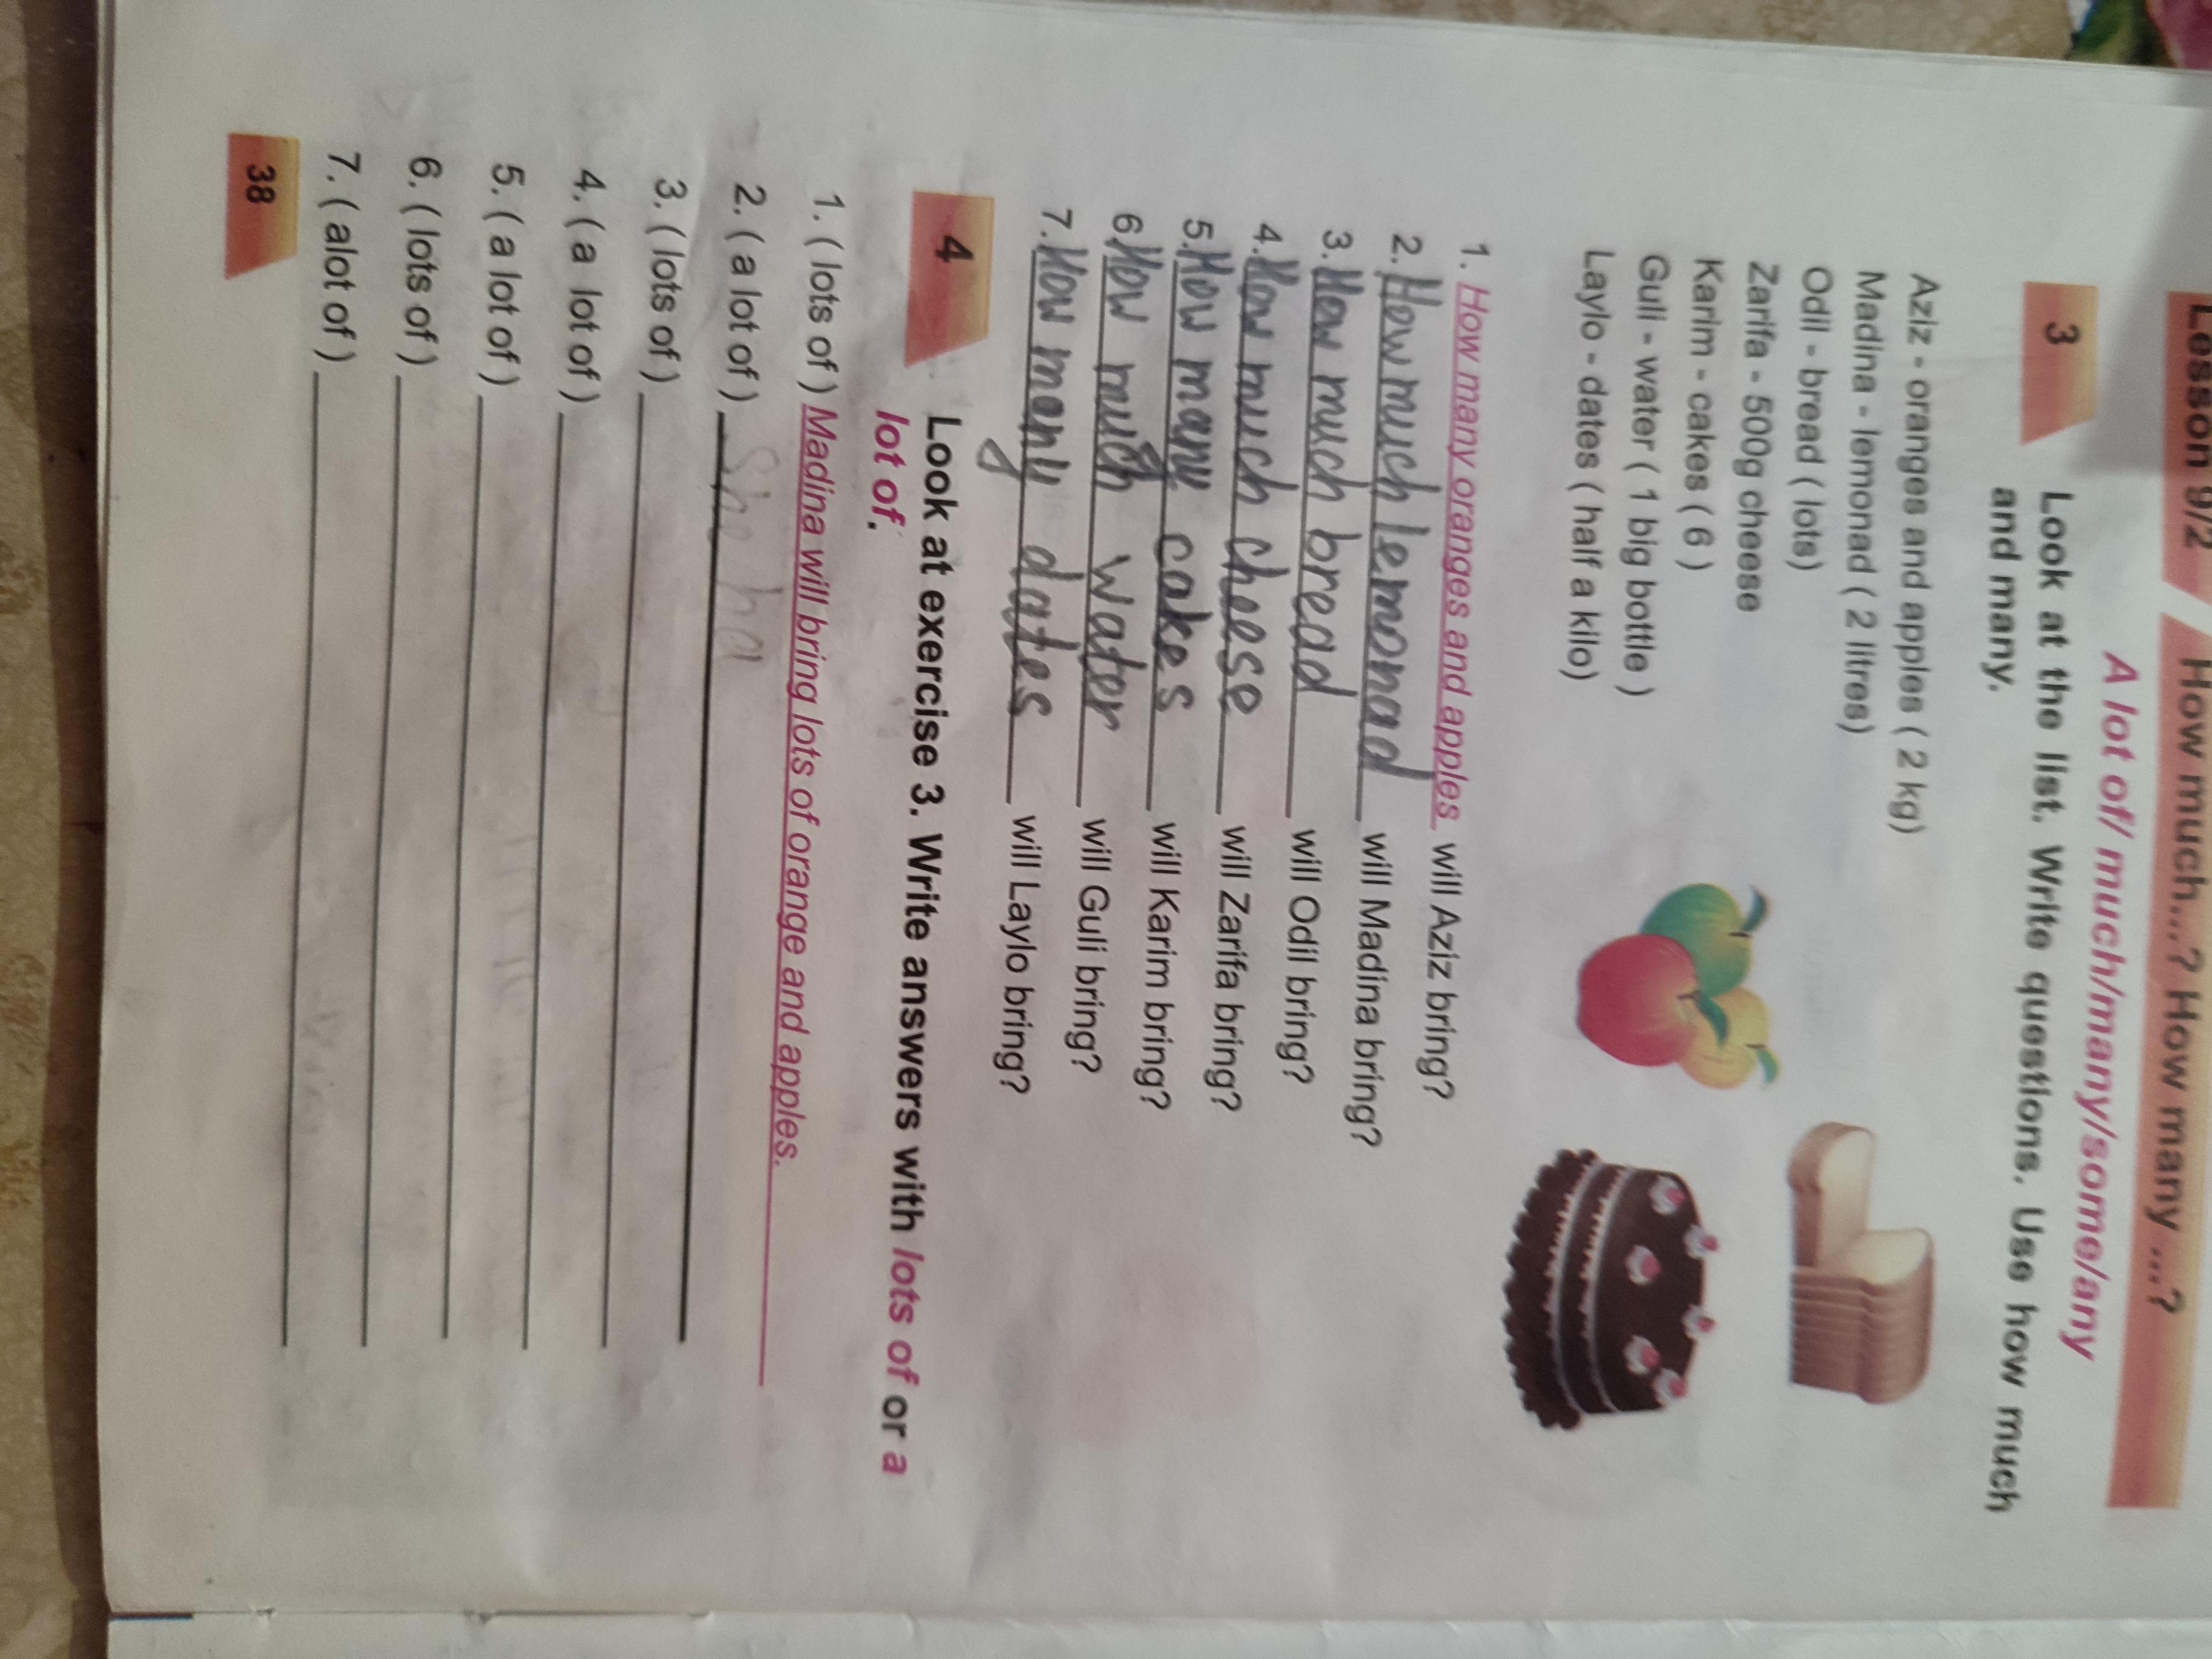 Lesson 9/2 How much...? How many ...?
A lot of/ much/many/some/any
3 Look at the list. Write questions. Use how much
and many.
Aziz - oranges and apples ( 2 kg)
Madina - lemonad ( 2 litres)
Odil - bread ( lots)
Zarifa - 500g cheese
Karim - cakes ( 6 )
Guli - water ( 1 big bottle )
Laylo - dates ( half a kilo)
1. How many oranges and apples will Aziz bring?
2. How much lemonad will Madina bring?
3. How much bread will Odil bring?
4. How much cheese will Zarifa bring?
5. How many cakes will Karim bring?
6. How much water will Guli bring?
7. How many dates will Laylo bring?
4 Look at exercise 3. Write answers with lots of or a
lot of.
1. ( lots of ) Madina will bring lots of orange and apples.
2. ( a lot of ) She ha
3. ( lots of )
4. ( a lot of )
5. ( a lot of )
6. ( lots of )
7. ( alot of )
38